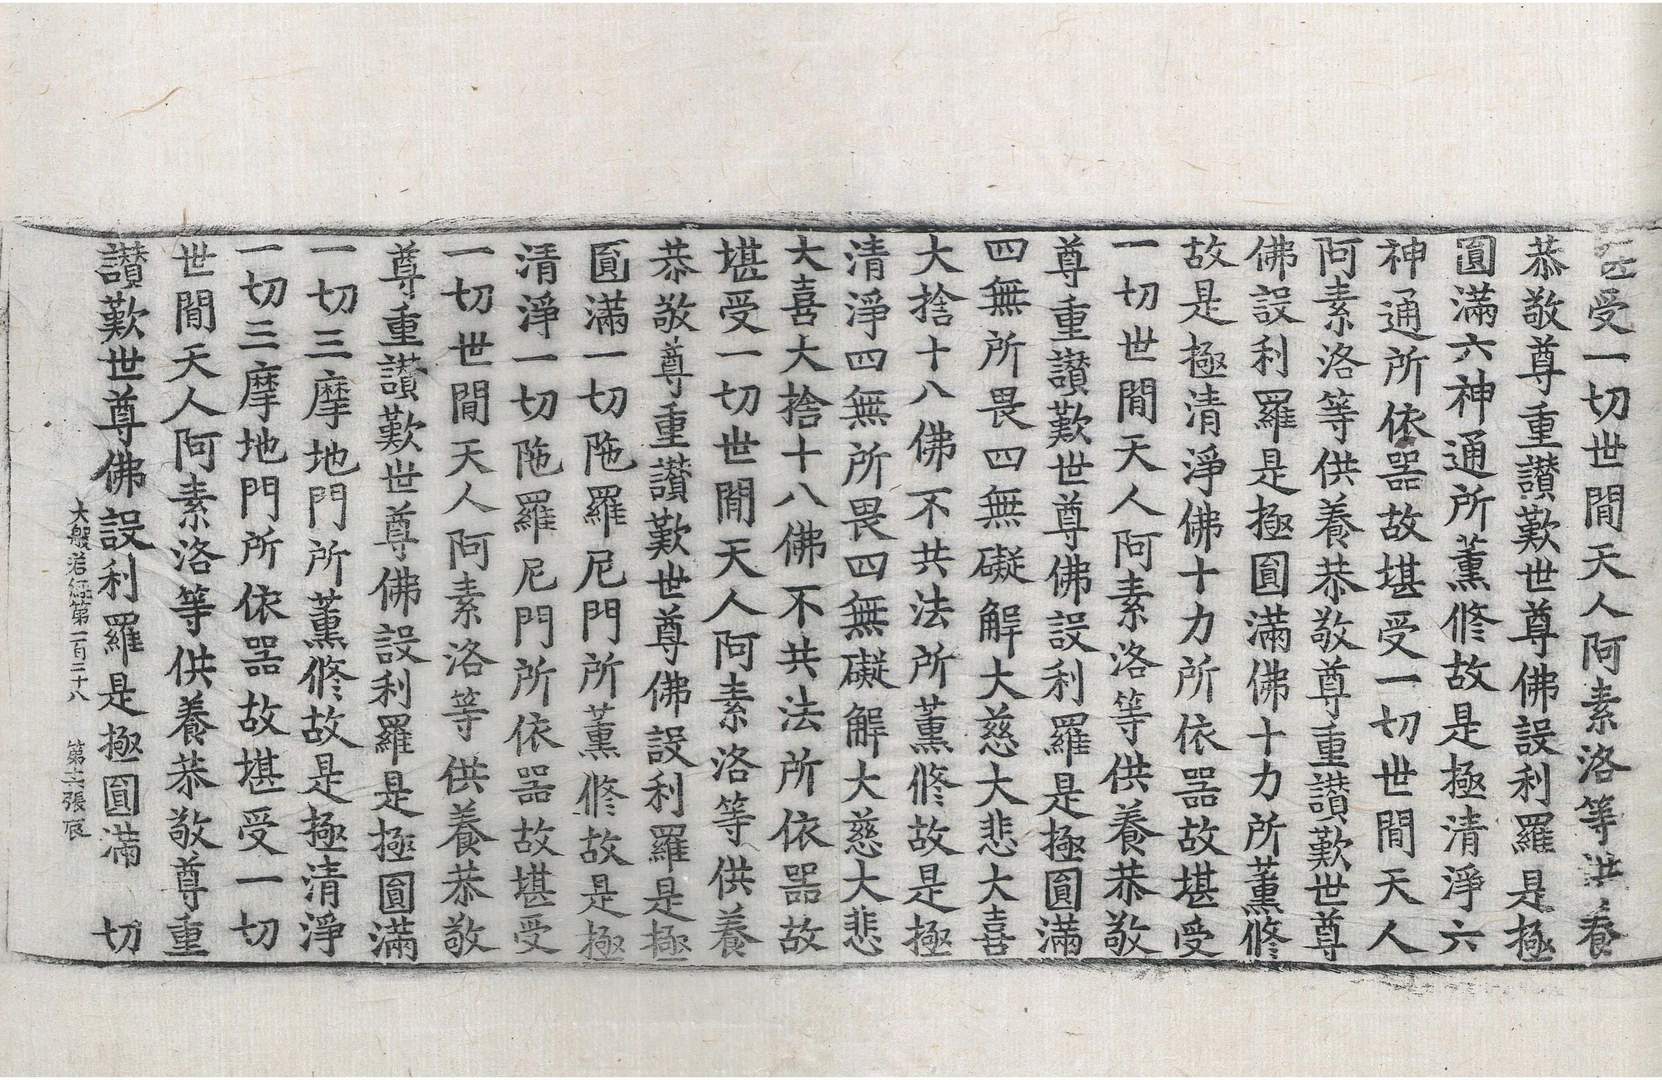 受一切世間天人阿素洛等供養
恭敬尊重讃歎世尊佛設利羅是極
圓滿六神通所薰修故是極清淨六
神通所依器故堪受一切世間天人
阿素洛等供養恭敬尊重讃歎世尊
佛設利羅是極圓滿佛十力所薰修
故是極清淨佛十力所依器故堪受
一切世間天人阿素洛等供養恭敬
尊重讃歎世尊佛設利羅是極圓滿
四無所畏四無礙解大慈大悲大喜
大捨十八佛不共法所薰修故是極
清淨四無所畏四無礙解大慈大悲
大喜大捨十八佛不共法所依器故
堪受一切世間天人阿素洛等供養
恭敬尊重讃歎世尊佛設利羅是極
圓滿一切陁羅尼門所薰修故是極
清淨一切陁羅尼門所依器故堪受
一切世間天人阿素洛等供養恭敬
尊重讃歎世尊佛設利羅是極圓滿
一切三摩地門所薰修故是極清淨
一切三摩地門所依器故堪受一切
世間天人阿素洛等供養恭敬尊重
讃歎世尊佛設利羅是極圓滿 切
大般若經第一百二十八 第十六張 辰